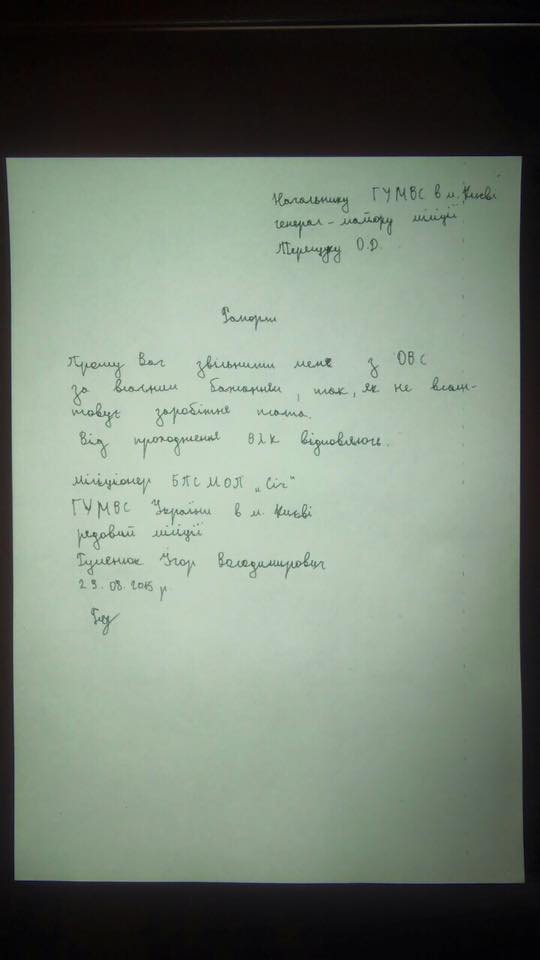 Начальнику ГУМВС в м. Києві
генерал-майору міліції
Терещуку О.Д.
Рапорт
Прошу Вас звільнити мене з ОВС
за власним бажанням, так, як не влаш-
товує заробітня плата.
Від проходження ВЛК відмовляюсь.
міліціонер БПСМОП „Січ"
ГУМВС України в м. Києві
рядовий міліції
Гуменюк Ігор Володимирович
29.08.2015 р.